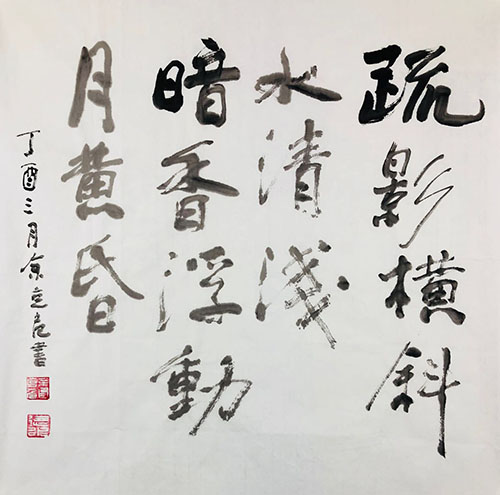 疏影橫斜
水清淺
暗香浮動
月黃昏
丁酉三月余立居書